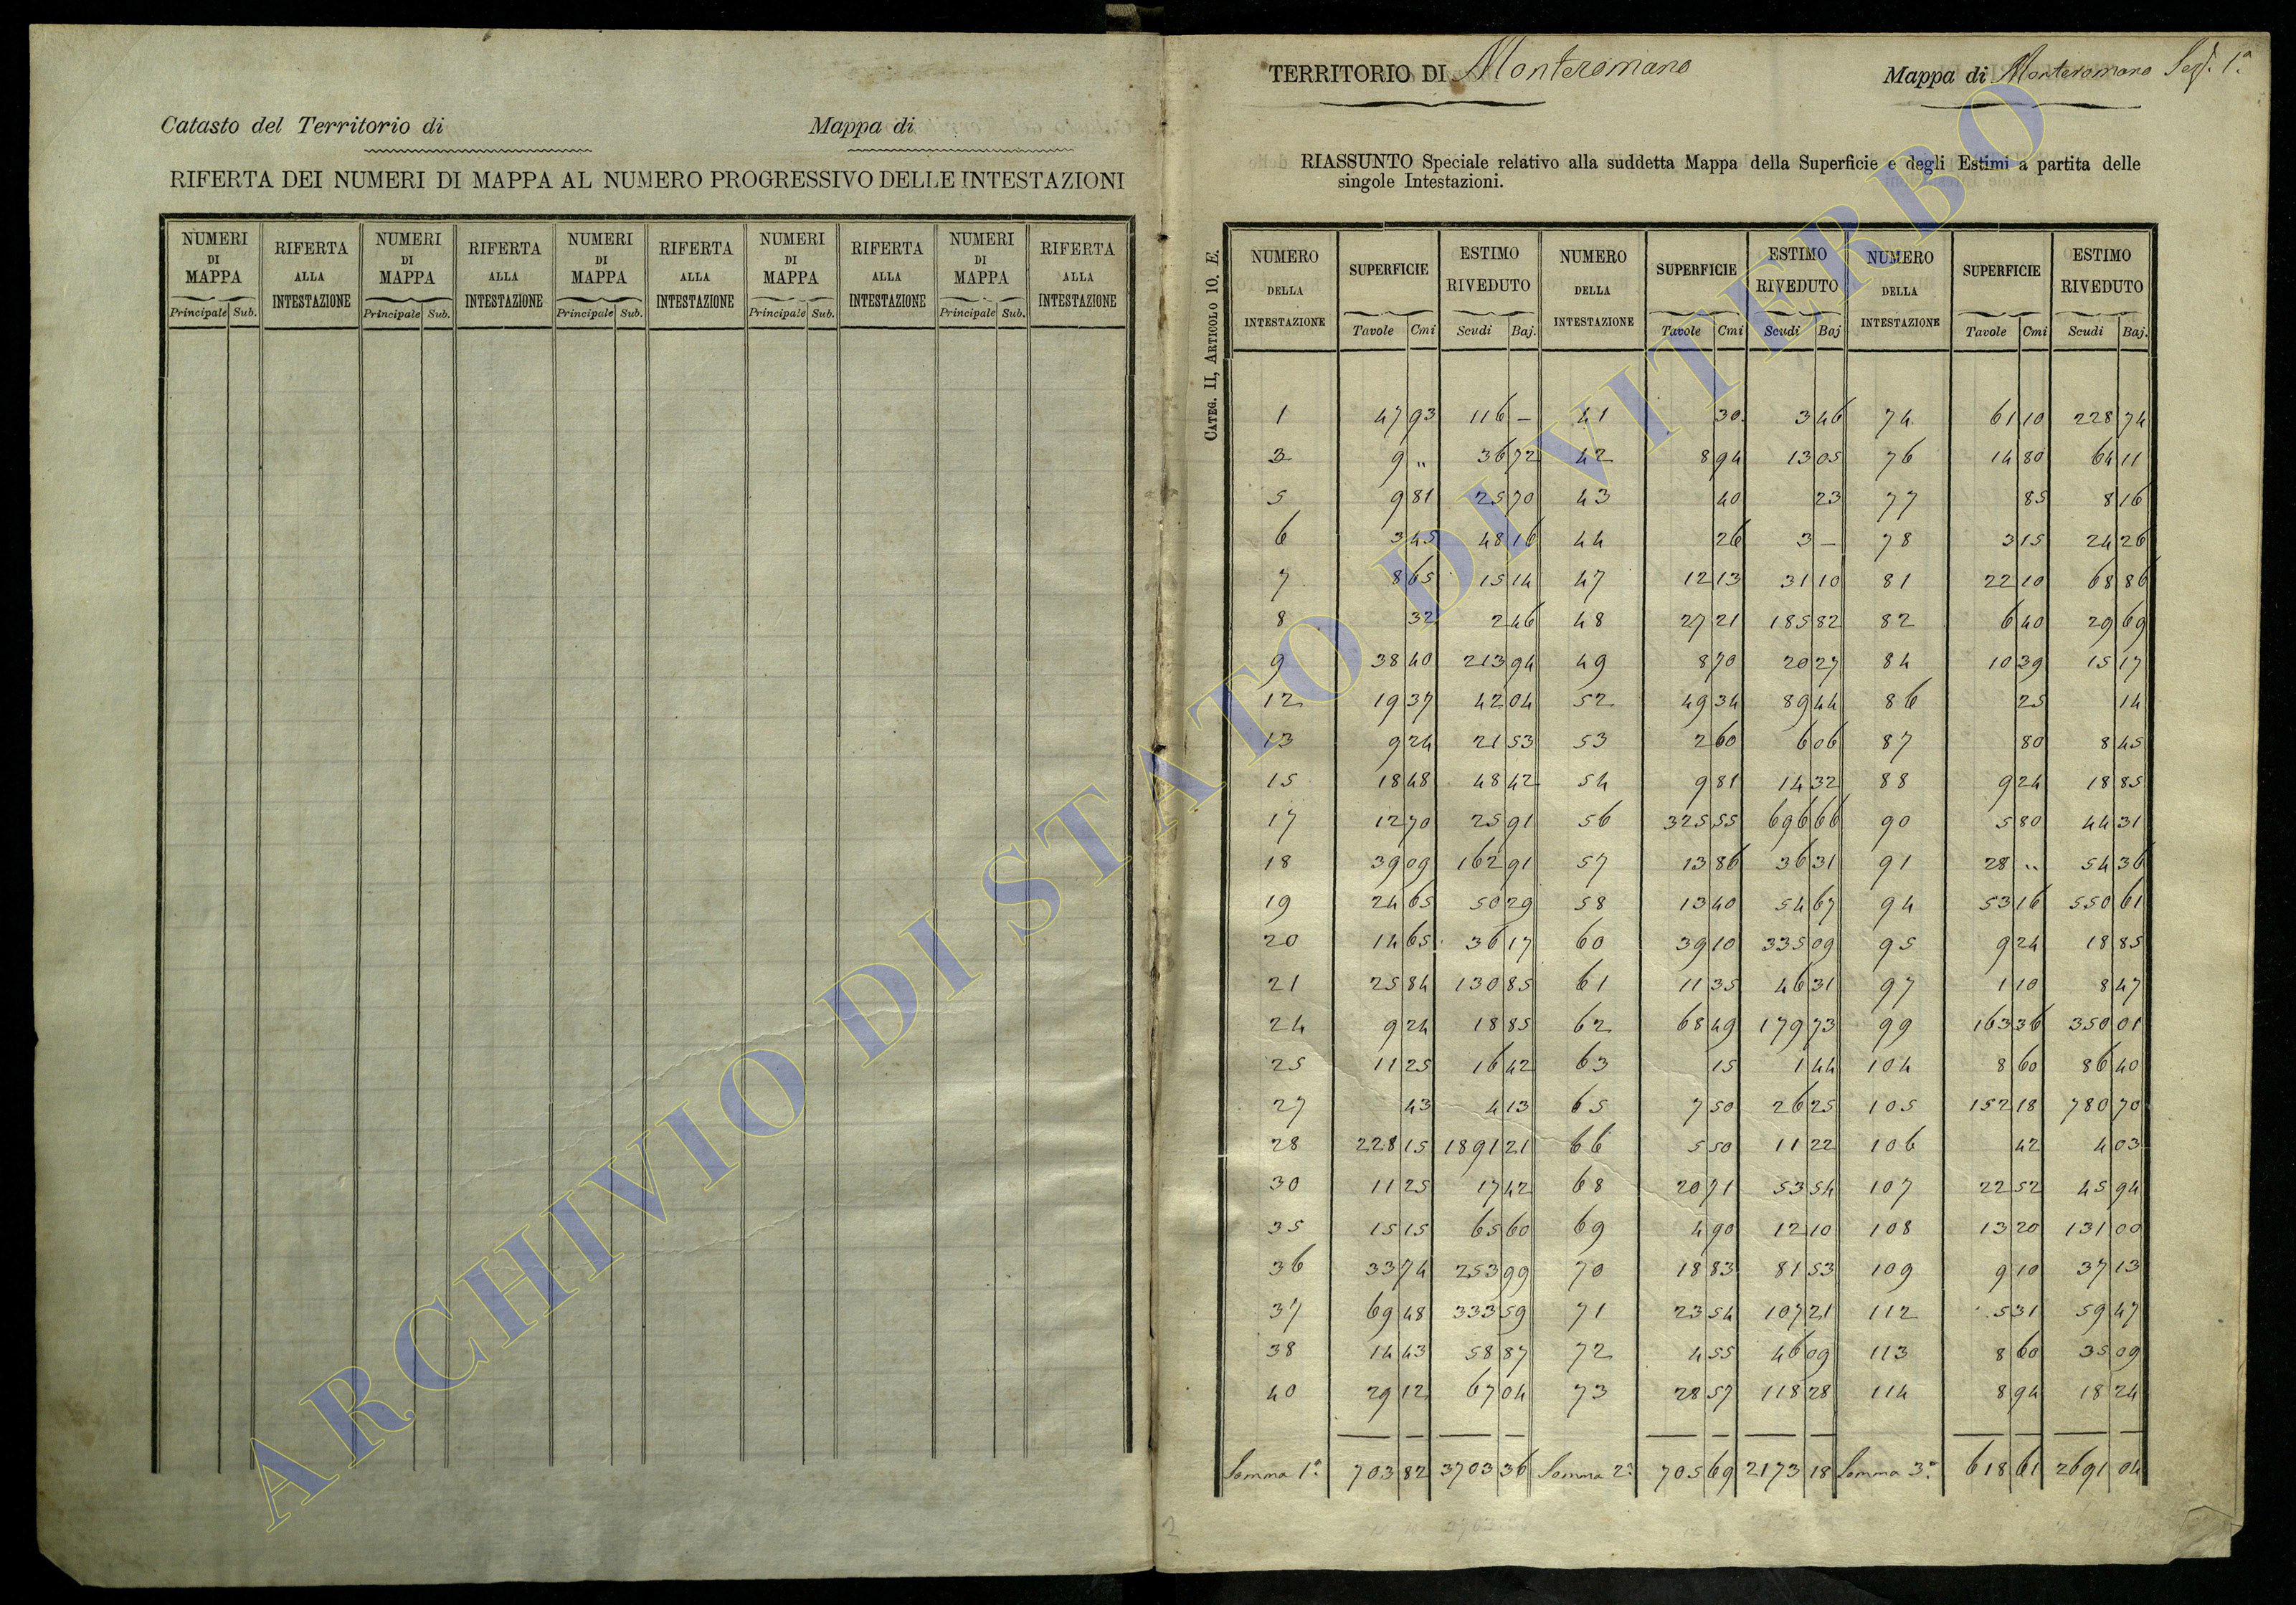 Catasto del Territorio di Mappa di
RIFERTA DEI NUMERI DI MAPPA AL NUMERO PROGRESSIVO DELLE INTESTAZIONI
NUMERI DI MAPPA RIFERTA ALLA INTESTAZIONE NUMERI DI MAPPA RIFERTA ALLA INTESTAZIONE NUMERI DI MAPPA RIFERTA ALLA INTESTAZIONE NUMERI DI MAPPA RIFERTA ALLA INTESTAZIONE NUMERI DI MAPPA RIFERTA ALLA INTESTAZIONE
Principale Sub. Principale Sub. Principale Sub. Principale Sub. Principale Sub.
TERRITORIO DI Monteromano Mappa di Monteromano Sez. 1ª
RIASSUNTO Speciale relativo alla suddetta Mappa della Superficie e degli Estimi a partita delle
singole Intestazioni.
CATEG. II, ARTICOLO 10. E.
NUMERO DELLA INTESTAZIONE SUPERFICIE ESTIMO RIVEDUTO NUMERO DELLA INTESTAZIONE SUPERFICIE ESTIMO RIVEDUTO NUMERO DELLA INTESTAZIONE SUPERFICIE ESTIMO RIVEDUTO
Tavole Cmi Scudi Baj. Tavole Cmi Scudi Baj Tavole Cmi Scudi Baj.
1 47 93 116 — 41 30 3 46 74 61 10 228 74
3 9 " 36 72 42 8 94 13 05 76 14 80 64 11
5 9 81 25 70 43 40 23 77 85 8 16
6 3 45 48 16 44 26 3 — 78 3 15 24 26
7 8 65 15 14 47 12 13 31 10 81 22 10 68 86
8 32 2 46 48 27 21 185 82 82 6 40 29 69
9 38 40 213 94 49 8 70 20 27 84 10 39 15 17
12 19 37 42 04 52 49 34 89 44 86 25 14
13 9 24 21 53 53 2 60 6 06 87 80 8 45
15 18 48 48 42 54 9 81 14 32 88 9 24 18 85
17 12 70 25 91 56 325 55 696 66 90 5 80 44 31
18 39 09 162 91 57 13 86 36 31 91 28 " 54 36
19 24 65 50 29 58 13 40 54 67 94 53 16 550 61
20 14 65 36 17 60 39 10 335 09 95 9 24 18 85
21 25 84 130 85 61 11 35 46 31 97 1 10 8 47
24 9 24 18 85 62 68 49 179 73 99 163 36 350 01
25 11 25 16 42 63 15 1 44 104 8 60 86 40
27 43 4 13 65 7 50 26 25 105 152 18 780 70
28 228 15 1891 21 66 5 50 11 22 106 42 4 03
30 11 25 17 42 68 20 71 53 54 107 22 52 45 94
35 15 15 65 60 69 4 90 12 10 108 13 20 131 00
36 33 74 253 99 70 18 83 81 53 109 9 10 37 13
37 69 48 333 59 71 23 54 107 21 112 5 31 59 47
38 14 43 58 87 72 4 55 46 09 113 8 60 35 09
40 29 12 67 04 73 28 57 118 28 114 8 94 18 24
Somma 1ª 703 82 3703 36 Somma 2ª 705 69 2173 18 Somma 3ª 618 61 2691 04
2
ARCHIVIO DI STATO DI VITERBO